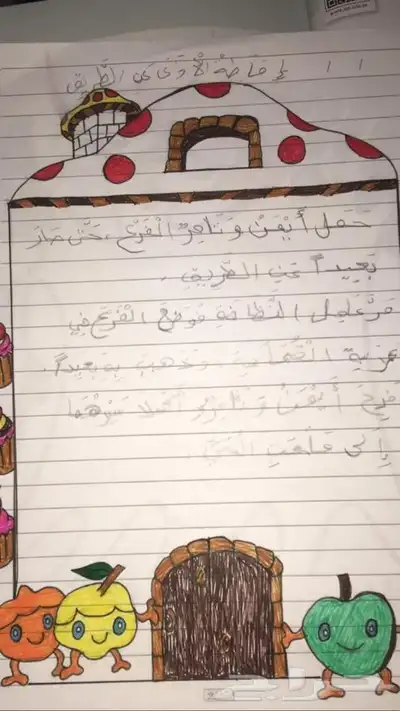 إِمَاطَةُ الْأَذَى عَنِ الطَّرِيقِ
حَمَلَ أَيْمَنُ وَتَامِرٌ الْفَرْعَ، حَتَّى صَارَ
بَعِيداً عَنِ الطَّرِيقِ.
مَرَّ عَامِلُ النَّظَافَةِ فَوَضَعَ الْفَرْعَ فِي
عَرَبَةِ الْقُمَامَةِ وَذَهَبَ بِهِ بَعِيداً.
فَرِحَ أَيْمَنُ وَتَامِرٌ
إِلَى مَلْعَبِ
حراج